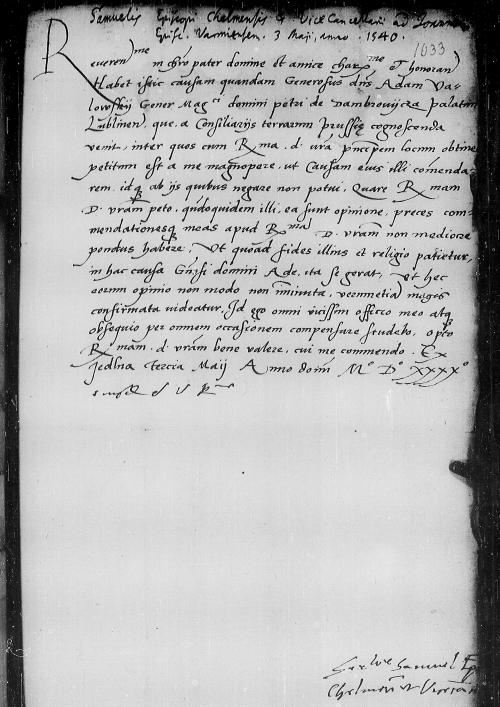 Samuelis Episcopi Chelmensis & Vice Cancellarii ad Joannem
Episc. Varmiensen. 3 Maij, anno. 1540.
1033
Reveren)me in chro pater domine et amice charme et honoran)
Habet istic causam quandam Generosus dns Adam Va-
lowskij Gener Magci domini petri de Dambrowijcza Palatini
Lublinen), que, a Consiliarijs terrarum Prussie cognoscenda
venit, inter quos cum R.ma. d. vra principem locum obtineat
petitum est a me magnopere, ut Causam eius illi comenda-
rem, idq ab ijs quibus negare non potui, Quare Rmam
D. vram peto, qndoquidem illi, ea sunt opinione, preces com-
mendationesq meas apud Rma D. vram non mediocre
pondus habere, Ut quoad fides illius et religio patietur,
in hac causa Gnsi domini Ade, ita se gerat, Ut hec
eorum opinio non modo non iminuta, verumetia magis
confirmata videatur, Id ego omni vicissim officio meo atq
obsequio per omnem occasionem compensare studebo, opto
Rmam. d. vram bene valere, cui me commendo. Ex
Jedlna tercia Maij Anno domi Mo Do XXXXo
Samuel Ep
Chelmen et Vicecan